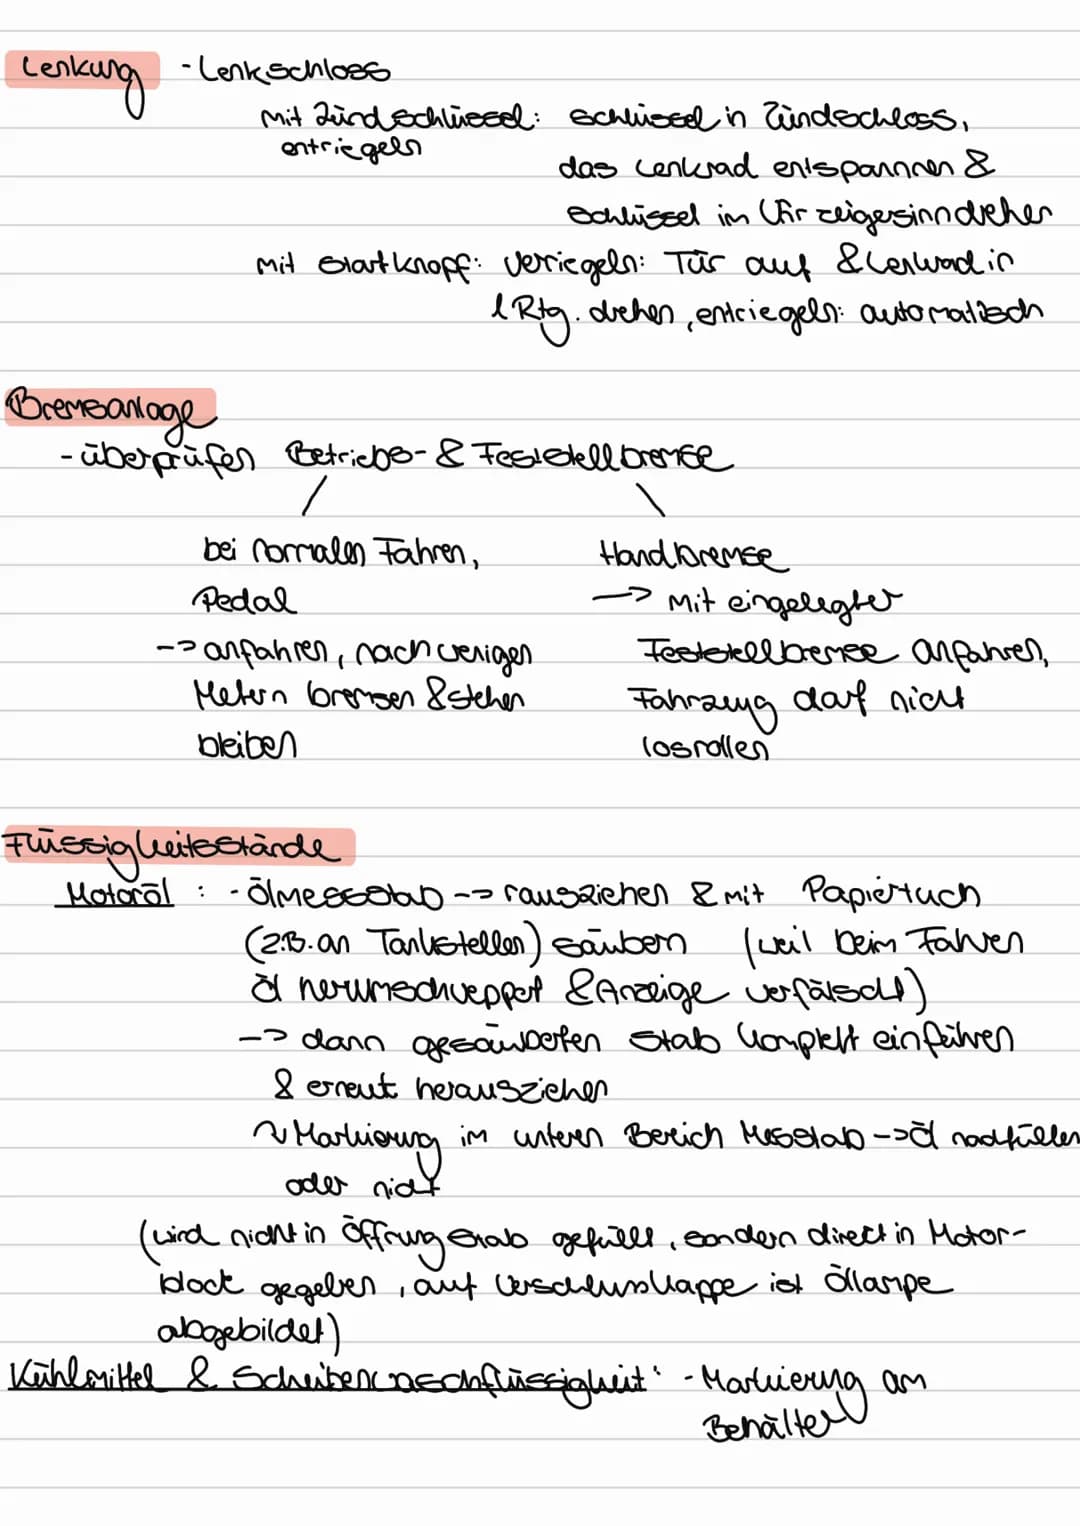 Lenkung - Lenkschloss
Mit Zündschlüssel: Schlüssel in Zündschloss,
entriegeln
das Lenkrad entspannen &
Schlüssel im Uhrzeigersinn drehen
Mit Startknopf: Verriegeln: Tür auf & Lenkrad in
1 Rtg. drehen, entriegeln: automatisch
Bremsanlage
- überprüfen Betriebs- & Feststellbremse
bei normalen Fahren,
Handbremse
Pedal
-> Mit eingelegter
-> anfahren, nach wenigen
Feststellbremse anfahren,
Metern bremsen & stehen
Fahrzeug darf nicht
bleiben
losrollen
Flüssigkeitsstände
Motoröl : - Ölmessstab --> rausziehen & mit Papiertuch
(z.B. an Tankstellen) säubern (weil beim Fahren
Öl herumschweppert & Anzeige verfälscht)
--> dann gesäuberten Stab komplett einführen
& erneut herausziehen
Markierung im unteren Bereich Messstab -> Öl nachfüllen
oder nicht
(wird nicht in Öffnung Stab gefüllt, sondern direct in Motor-
block gegeben, auf Verschlusskappe ist Öllampe
abgebildet)
Kühlmittel & Scheibenwaschflüssigkeit: - Markierung am
Behälter